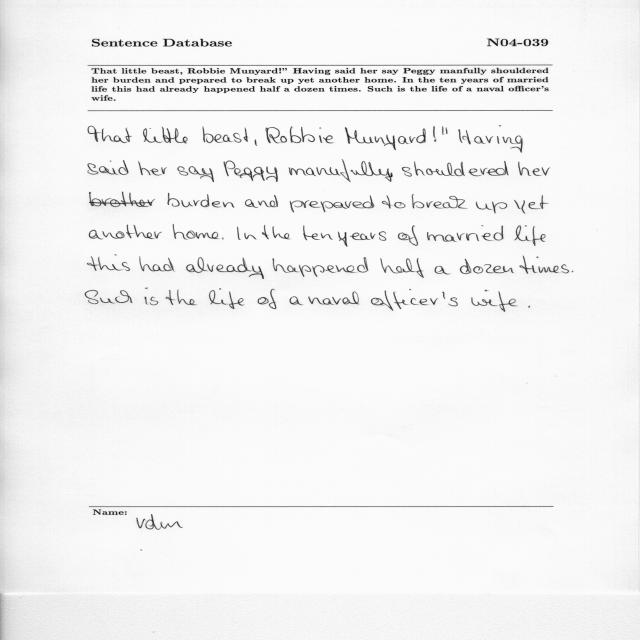 Sentence Database N04-039
That little beast, Robbie Munyard!" Having said her say Peggy manfully shouldered
her burden and prepared to break up yet another home. In the ten years of married
life this had already happened half a dozen times. Such is the life of a naval officer's
wife.
that little beast, Robbie Munyard!" Having
said her say Peggy manufully shouldered her
brother burden and prepared to break up yet
another home. In the ten years of married life
this had already happened half a dozen times.
Such is the life of a naval officer's wife.
Name:
vdm